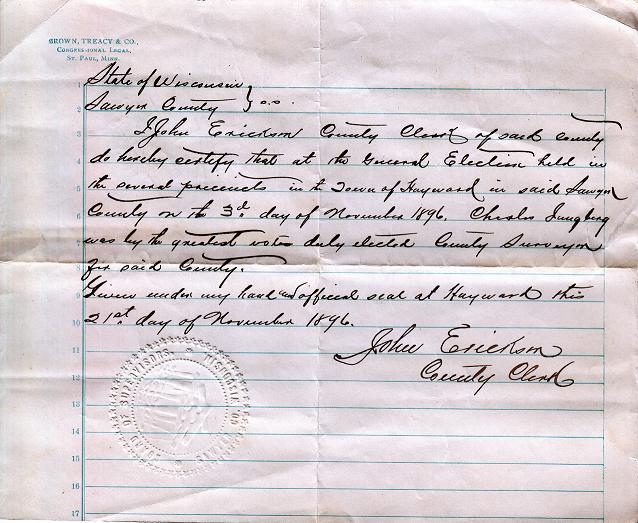 BROWN, TREACY & CO.,
CONGRESSIONAL LEGAL,
ST. PAUL, MINN.
1 State of Wisconsin }
2 Sawyer County } s.s.
3 I John Erickson County Clerk of said county
4 do hereby certify that at the General Election held in
5 the several precincts in the Town of Hayward in said Sawyer
6 County on the 3d. day of November 1896, Charles Jungberg
7 was by the greatest votes duly elected County Surveyor
8 for said County.
9 Given under my hand and official seal at Hayward this
10 21st. day of November 1896.
11 John Erickson
12 County Clerk
13
14
15
16
17
BOARD OF SUPERVISORS
SAWYER CO. WISCONSIN